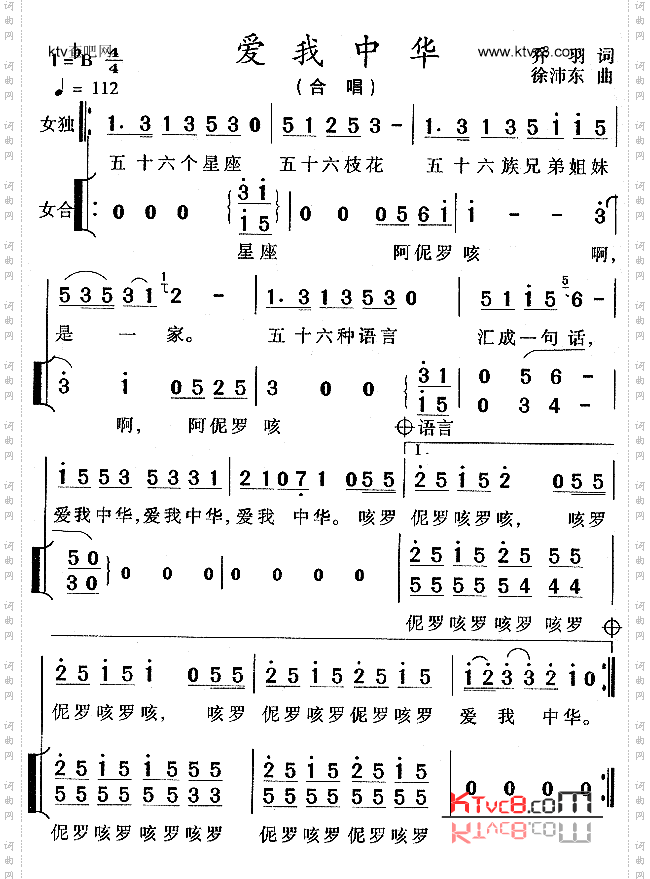 ktv酷吧网
www.ktvc8.com
爱我中华
(合 唱)
1=♭B 4/4
♩= 112
乔 羽 词
徐沛东 曲
女独 1. 3 1 3 5 3 0 5 1 2 5 3 - 1. 3 1 3 5 i i 5
五十六个星座 五十六枝花 五十六族兄弟姐妹
女合 0 0 0 3 1 0 0 0 5 6 1 i - - 3
i 5
星座 阿伲罗咳 啊,
5 3 5 3 1 2 - 1. 3 1 3 5 3 0 5 1 i 5 6 -
是 一 家。 五十六种语言 汇成一句话,
3 i 0 5 2 5 2 0 0 3 1 0 5 6 -
i 5 0 3 4 -
啊, 阿伲罗 咳 语言
1.
i 5 5 3 5 3 3 1 2 1 0 7 1 0 5 5 2 5 i 5 2 0 5 5
爱我中华,爱我中华,爱我 中华。 咳罗 伲罗咳罗咳, 咳罗
5 0 0 0 0 0 0 0 0 2 5 i 5 2 5 5 5
3 0 5 5 5 5 5 5 4 4
伲罗咳罗咳罗咳罗
2 5 i 5 i 0 5 5 2 5 i 5 2 5 i 5 i 2 3 3 2 i 0
伲罗咳罗咳, 咳罗 伲罗咳罗伲罗咳罗 爱 我 中华。
2 5 i 5 i 5 5 5 2 5 i 5 2 5 i 5 0 0 0 0
5 5 5 5 5 5 3 3 5 5 5 5 5 5 5 5
伲罗咳罗咳罗咳罗 伲罗咳罗 伲罗咳罗
KTvc8.com
词曲网